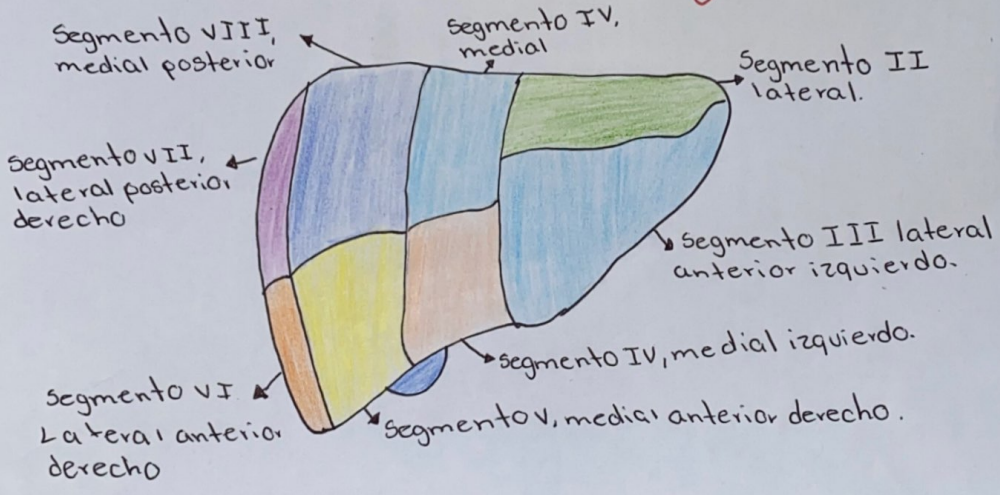 Segmento VIII,
medial posterior
Segmento IV,
medial
Segmento II
lateral.
Segmento VII,
lateral posterior
derecho
Segmento III lateral
anterior izquierdo.
Segmento IV, medial izquierdo.
Segmento VI
Lateral anterior
derecho
Segmento V, medial anterior derecho.